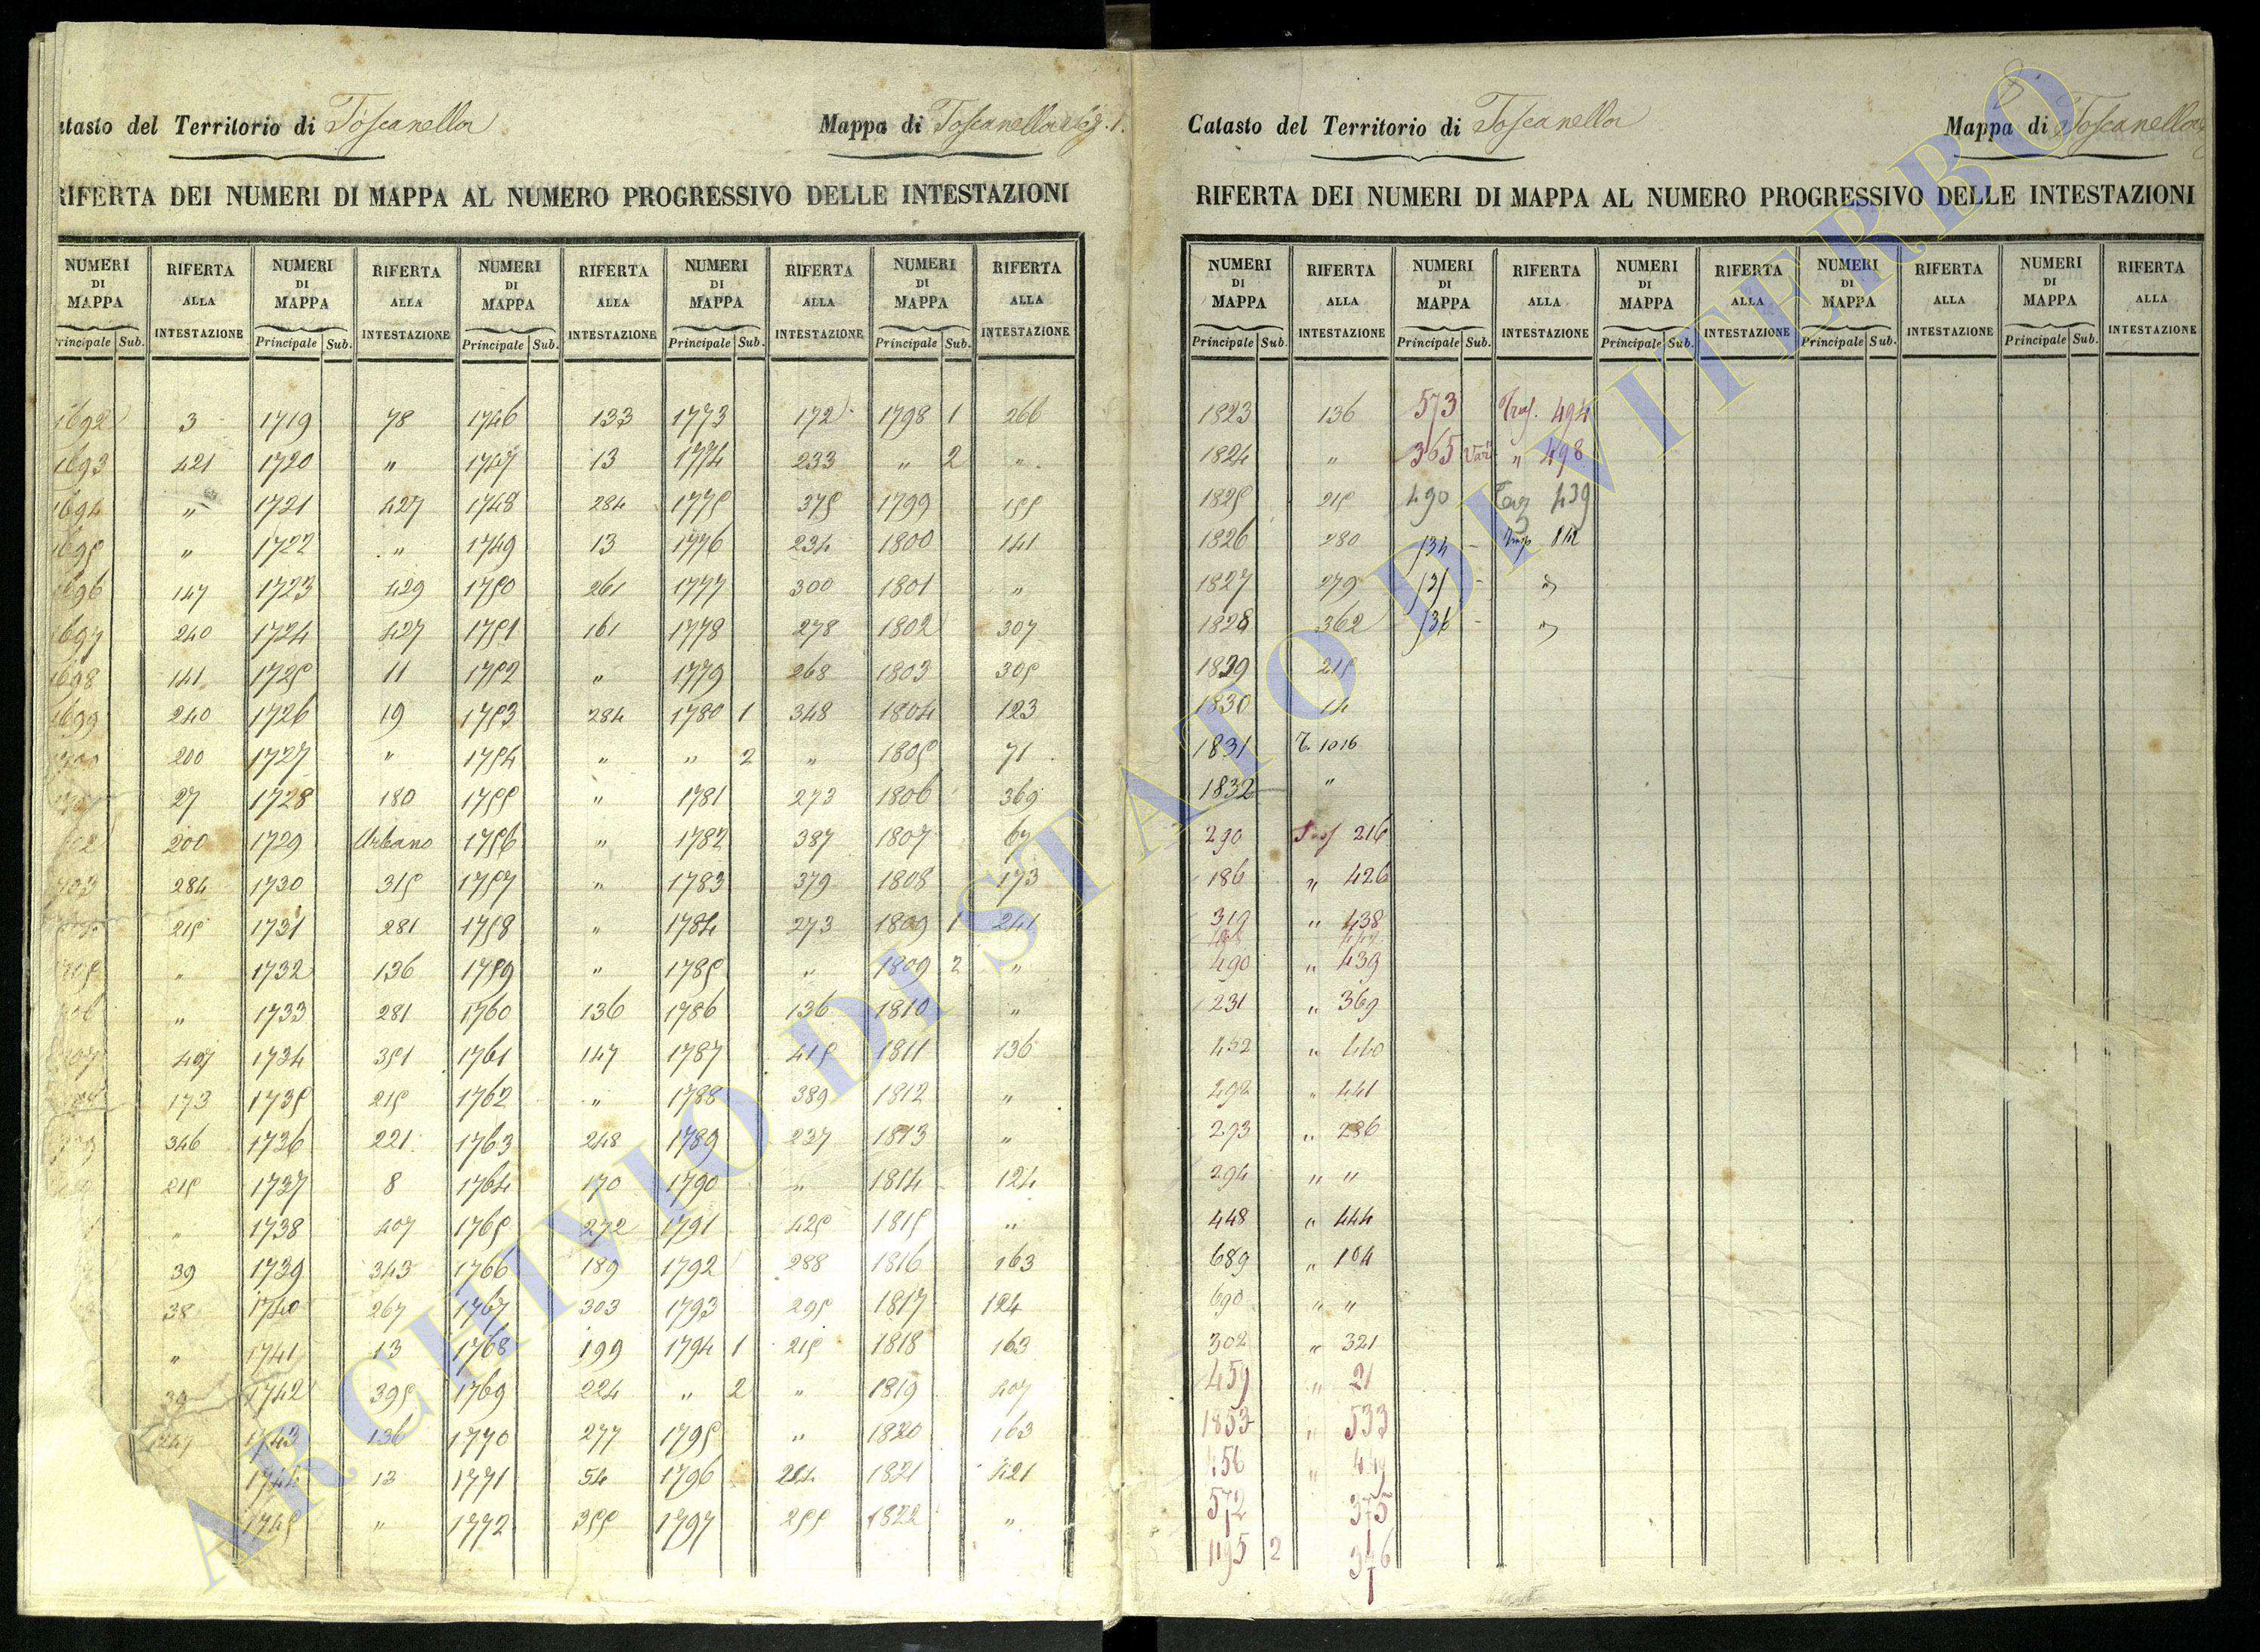 Catasto del Territorio di Toscanella Mappa di Toscanella Sez. 1.
RIFERTA DEI NUMERI DI MAPPA AL NUMERO PROGRESSIVO DELLE INTESTAZIONI
NUMERI RIFERTA NUMERI RIFERTA NUMERI RIFERTA NUMERI RIFERTA NUMERI RIFERTA
DI DI DI DI DI
MAPPA ALLA MAPPA ALLA MAPPA ALLA MAPPA ALLA MAPPA ALLA
Principale Sub. INTESTAZIONE Principale Sub. INTESTAZIONE Principale Sub. INTESTAZIONE Principale Sub. INTESTAZIONE Principale Sub. INTESTAZIONE
1692 3 1719 78 1746 133 1773 172 1798 1 266
1693 421 1720 " 1747 13 1774 233 " 2 "
1694 " 1721 427 1748 284 1775 375 1799 155
1695 " 1722 " 1749 13 1776 234 1800 141
1696 147 1723 429 1750 261 1777 300 1801 "
1697 240 1724 427 1751 161 1778 278 1802 307
1698 141 1725 11 1752 " 1779 268 1803 305
1699 240 1726 19 1753 284 1780 1 348 1804 123
1700 200 1727 " 1754 " " 2 " 1805 71
27 1728 180 1755 " 1781 273 1806 369
200 1729 Urbano 1756 " 1782 387 1807 67
1703 284 1730 315 1757 " 1783 379 1808 173
215 1731 281 1758 " 1784 273 1809 1 241
1705 " 1732 136 1759 " 1785 " 1809 2 "
" 1733 281 1760 136 1786 136 1810 "
407 1734 351 1761 147 1787 415 1811 136
173 1735 215 1762 " 1788 389 1812 "
346 1736 221 1763 248 1789 237 1813 "
215 1737 8 1764 170 1790 " 1814 124
" 1738 407 1765 272 1791 425 1815 "
39 1739 343 1766 189 1792 288 1816 163
38 1740 267 1767 303 1793 295 1817 124
" 1741 13 1768 199 1794 1 215 1818 163
39 1742 395 1769 224 " 2 " 1819 407
247 1743 136 1770 277 1795 " 1820 163
1744 13 1771 54 1796 214 1821 421
1745 " 1772 355 1797 255 1822 "
Catasto del Territorio di Toscanella Mappa di Toscanella
RIFERTA DEI NUMERI DI MAPPA AL NUMERO PROGRESSIVO DELLE INTESTAZIONI
NUMERI RIFERTA NUMERI RIFERTA NUMERI RIFERTA NUMERI RIFERTA NUMERI RIFERTA
DI DI DI DI DI
MAPPA ALLA MAPPA ALLA MAPPA ALLA MAPPA ALLA MAPPA ALLA
Principale Sub. INTESTAZIONE Principale Sub. INTESTAZIONE Principale Sub. INTESTAZIONE Principale Sub. INTESTAZIONE Principale Sub. INTESTAZIONE
1823 136 573 Tras. 494
1824 " 365 Vari " 498
1825 215 490 439
1826 280 134
1827 279 135 "
1828 362 136 "
1829 215
1830 14
1831 T. 1016
1832 "
290 Tras 216
186 " 426
319 " 438
490 " 439
231 " 369
432 " 440
492 " 441
293 " 286
294 " "
448 " 444
689 " 104
690 " "
302 " 321
459 " 21
1853 " 533
456 " 449
572 375
1195 2 346
ARCHIVIO DI STATO DI VITERBO